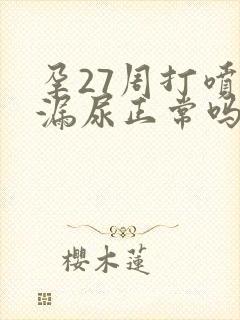 孕27周打喷
漏尿正常吗
樱木蓮